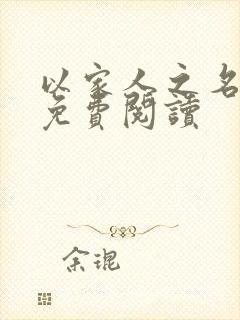 以家人之名
免費閱讀
余琨